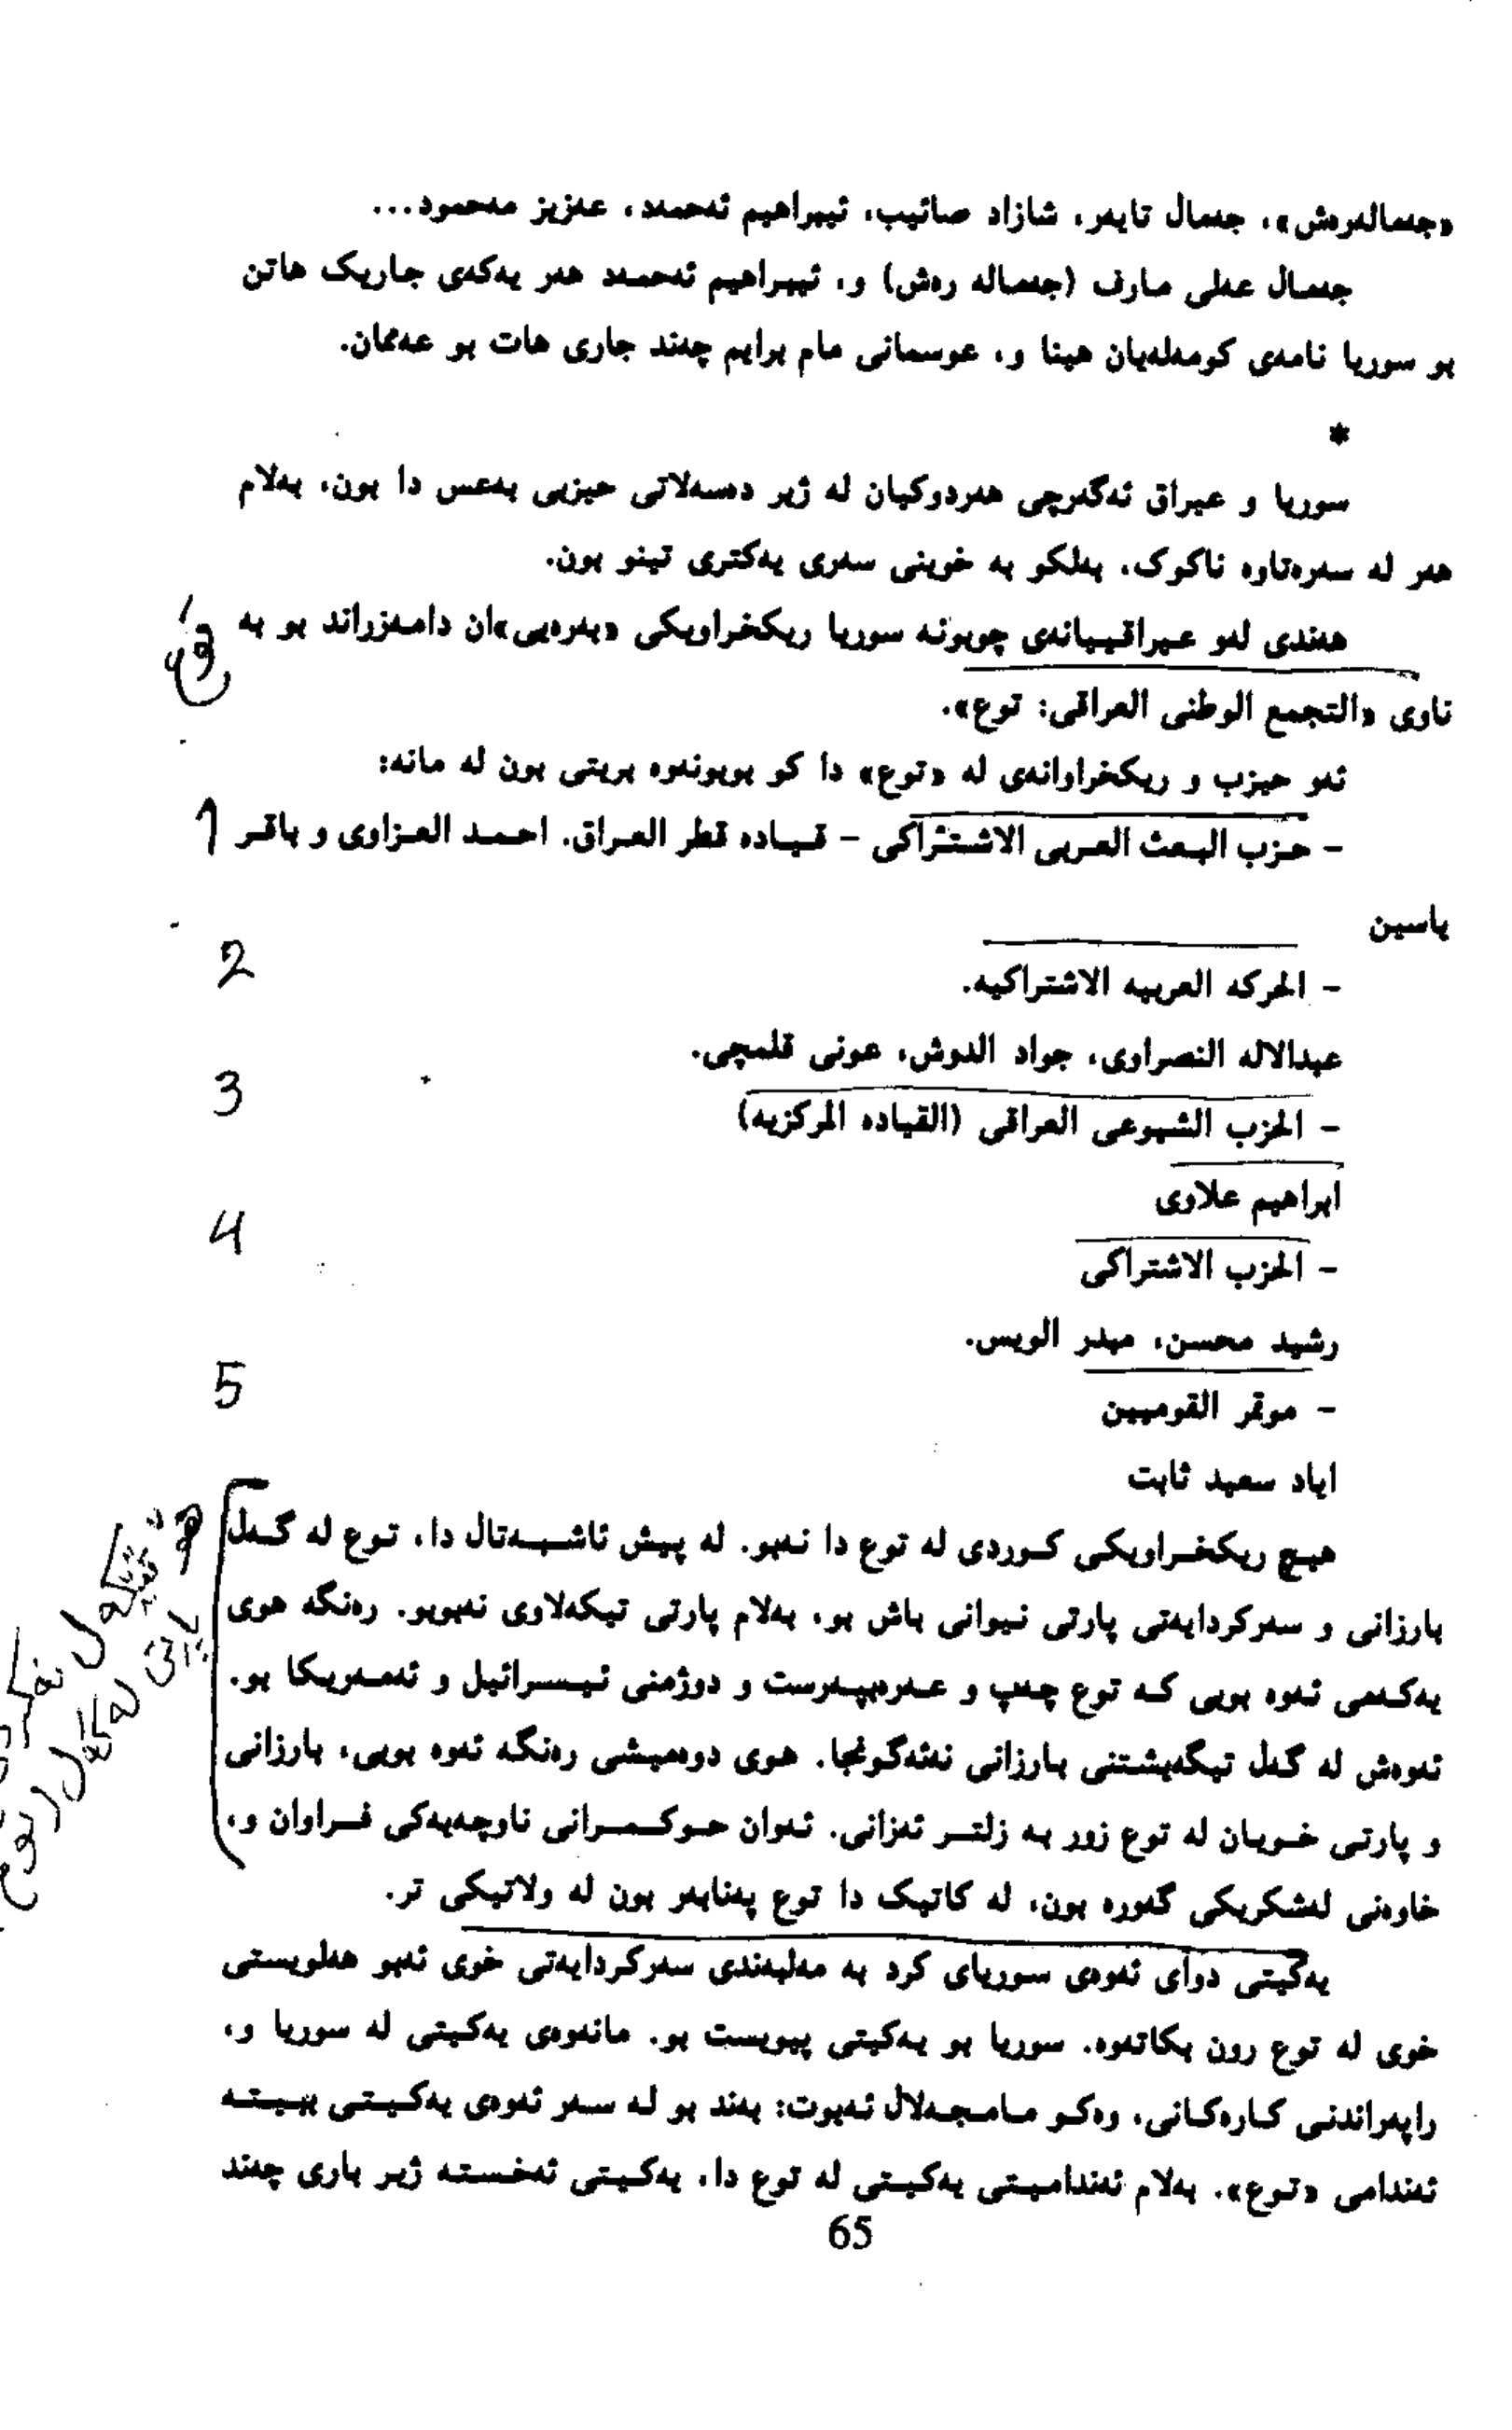 «جەمالەرەش»، جەمال تایەر، شازاد صائیب، ئیبراهیم ئەحمەد، عەزیز مەحمود...
جەمال عەلی مارف (جەماله رەش) و، ئیبراهیم ئەحمەد هەر یەکەی جاریک هاتن
بو سوریا نامەی کومەلەیان هینا و، عوسمانی مام برایم چەند جاری هات بو عەممان.
*
سوریا و عیراق ئەگەرچی هەردوکیان له ژیر دەسەلاتی حیزبی بەعس دا بون، بەلام
هەر له سەرەتاوه ناکوک، بەلکو به خوینی سەری یەکتری تینو بون.
هەندی لەو عیراقییانەی چوبونه سوریا ریکخراویکی «بەرەیی»ان دامەزراند بو به
ناوی «التجمع الوطنی العراقی: توع».
ئەو حیزب و ریکخراوانەی له «توع» دا کو بوبونەوه بریتی بون له مانه:
- حزب البعث العربی الاشتراکی - قیاده قطر العراق. احمد العزاوی و باقر 1
یاسین
2
- الحرکه العربیه الاشتراکیه.
عبدالاله النصراوی، جواد الدوش، عونی قلمچی.
3
- الحزب الشیوعی العراقی (القیاده المرکزیه)
ابراهیم علاوی
4
- الحزب الاشتراکی
رشید محسن، مبدر الویس.
5
- موتمر القومیین
ایاد سعید ثابت
هیچ ریکخراویکی کوردی له توع دا نەبو. له پیش ئاشبەتال دا، توع له گەل
بارزانی و سەرکردایەتی پارتی نیوانی باش بو، بەلام پارتی تیکەلاوی نەبوبو. رەنگه هوی
یەکەمی ئەوه بوبی که توع چەپ و عەرەبپەرست و دوژمنی ئیسرائیل و ئەمەریکا بو.
ئەوەش له گەل تیگەیشتنی بارزانی نەئەگونجا. هوی دوەمیشی رەنگه ئەوه بوبی، بارزانی
و پارتی خویان له توع زور به زلتر ئەزانی. ئەوان حوکمرانی ناوچەیەکی فراوان و،
خاوەنی لەشکریکی گەوره بون، له کاتیک دا توع پەنابەر بون له ولاتیکی تر.
یەکیتی دوای ئەوەی سوریای کرد به مەلبەندی سەرکردایەتی خوی ئەبو هەلویستی
خوی له توع رون بکاتەوه. سوریا بو یەکیتی پیویست بو. مانەوەی یەکیتی له سوریا و،
راپەراندنی کارەکانی، وەکو مامجەلال ئەیوت: بەند بو له سەر ئەوەی یەکیتی ببیته
ئەندامی «توع». بەلام ئەندامیتی یەکیتی له توع دا، یەکیتی ئەخسته ژیر باری چەند
65